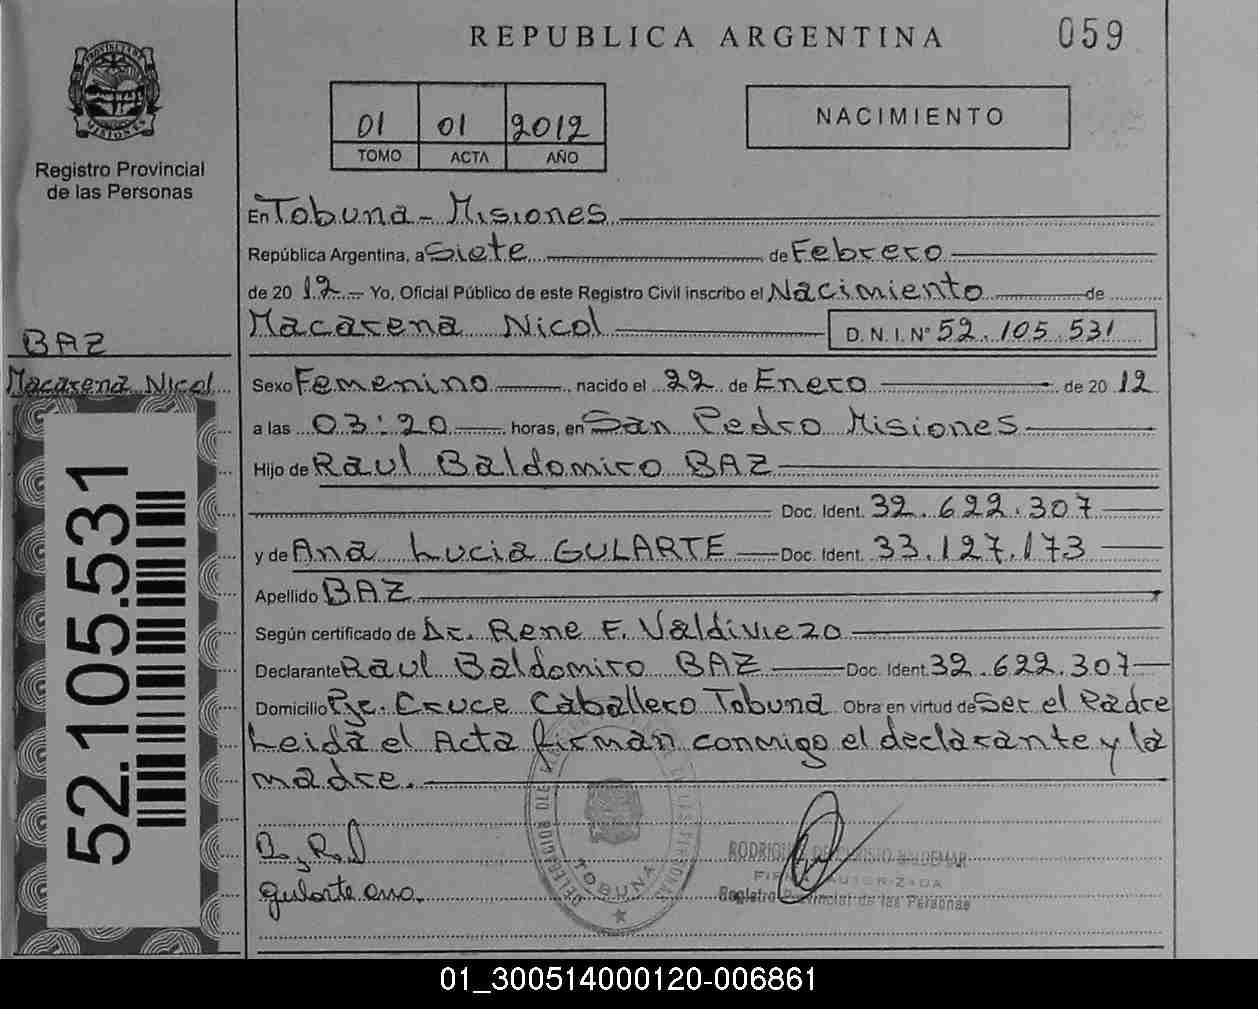 REPUBLICA ARGENTINA
059
PROVINCIA DE
MISIONES
Registro Provincial
de las Personas
01 01 2012
TOMO ACTA AÑO
NACIMIENTO
En Tobuna - Misiones
República Argentina, a Siete de Febrero
de 20 12 Yo, Oficial Público de este Registro Civil inscribo el Nacimiento de
Macarena Nicol D. N. I. Nº 52.105.531
BAZ
Macarena Nicol
Sexo Femenino, nacido el 22 de Enero de 20 12
a las 03:20 horas, en San Pedro Misiones
Hijo de Raul Baldomiro BAZ
Doc. Ident. 32.622.307
y de Ana Lucia GULARTE Doc. Ident. 33.127.173
Apellido BAZ
Según certificado de Dr. Rene F. Valdiviezo
Declarante Raul Baldomiro BAZ Doc. Ident. 32.622.307
Domicilio Pje. Cruce Caballero Tobuna Obra en virtud de Ser el Padre
Leida el Acta firman conmigo el declarante y la
madre.
52.105.531
Gularte ana.
TOBUNA
FIRMA AUTORIZADA
Registro Provincial de las Personas
01_300514000120-006861